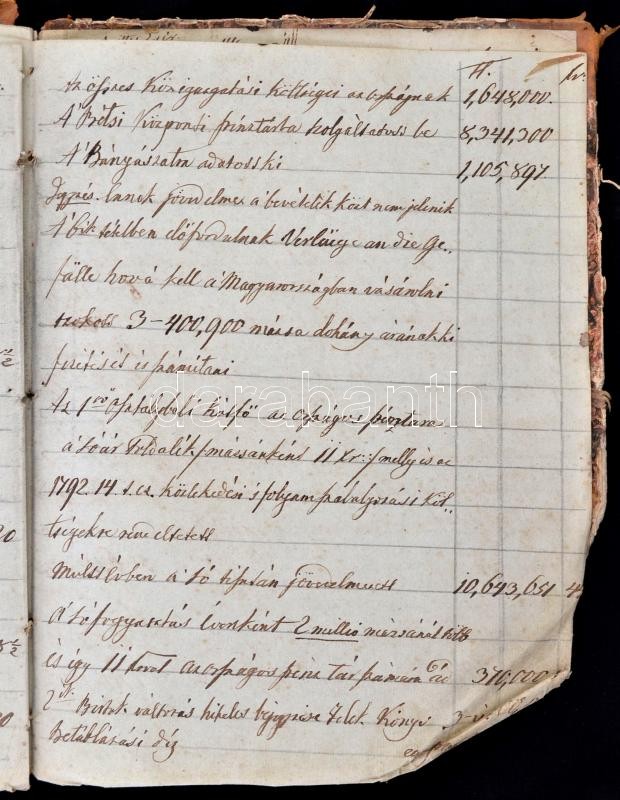 ft. kr.
Az öszves Közigazgatási költségei az országnak 1,648,000.
A' Bétsi Központi pénztárba szolgáltatott be 8,341,300
A' Bányászatra adatott ki 1,105,897
Jegyzés. Ennek jövedelme a bevételek közt nem jelenik
A' tételben előfordulnak Verläge an die Ge-
fälle hová kell a Magyarországban vásárolni
szokott 3-400,900 mázsa dohány árának ki
fizetését is számítani
Az 1ső osztálybeli az országos pénztára
a só ár mázsánként 11 xr: melly is az
1792. 14. t. cz. közlekedési s folyam szabályozási köl-
tségekre rendeltetett
Múlt évben a só tisztán jövedelmezett 10,643,651 4
A' sófogyasztás évenként 2 millió mázsánál több
és így 11 az országos pénz tár számára 370,000
2. Birtok változás hiteles Telek Könyv 3
Betáblázási díj
darabanth